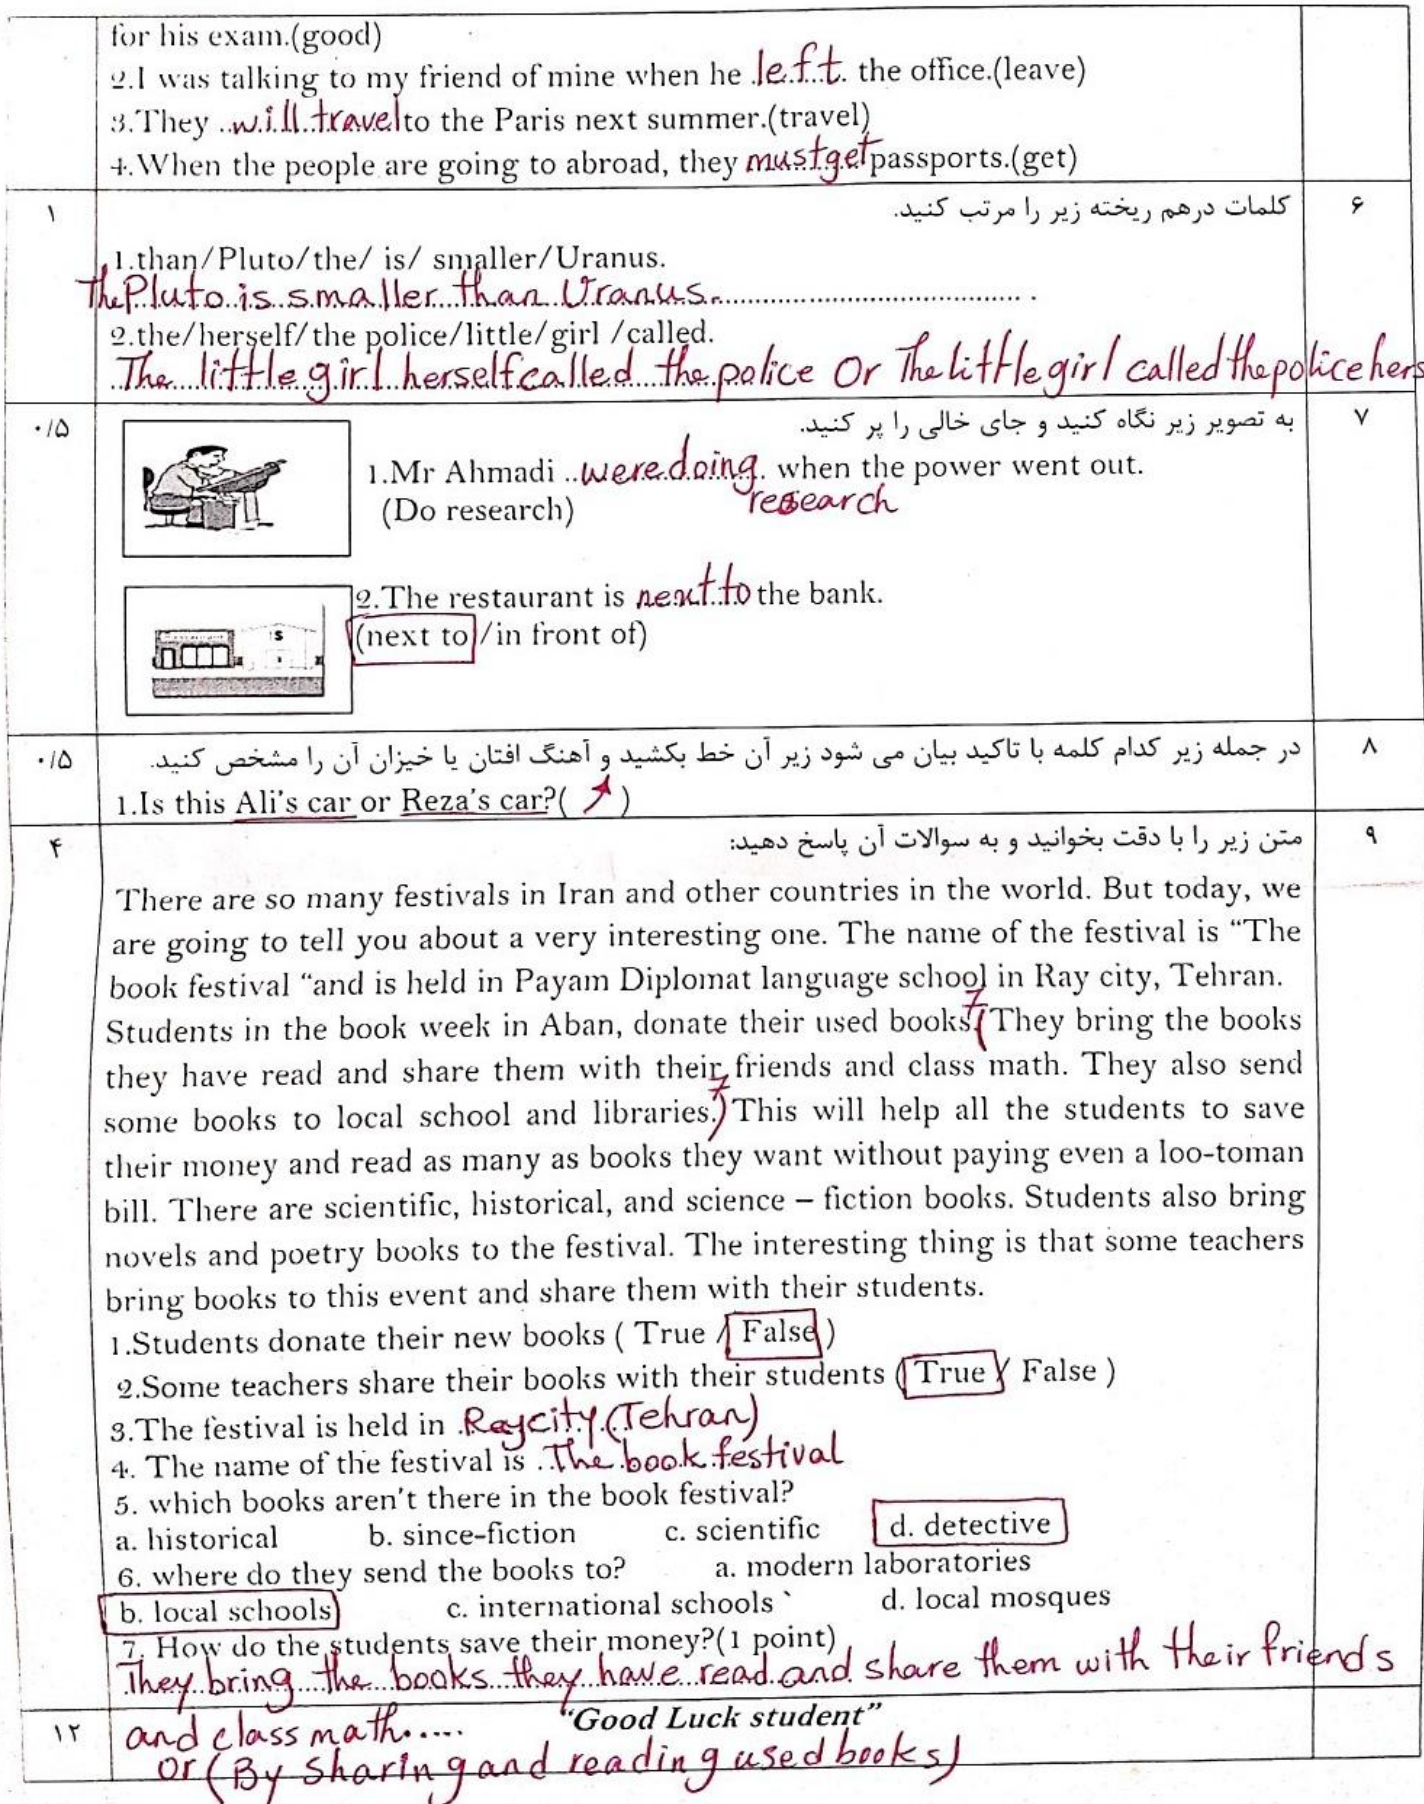 for his exam.(good)
2.I was talking to my friend of mine when he left the office.(leave)
3.They will travel to the Paris next summer.(travel)
4.When the people are going to abroad, they must get passports.(get)
۱ کلمات درهم ریخته زیر را مرتب کنید. ۶
1.than/Pluto/the/ is/ smaller/Uranus.
The Pluto is smaller than Uranus.
2.the/herself/the police/little/girl /called.
The little girl herself called the police Or The little girl called the police hers
۰/۵ به تصویر زیر نگاه کنید و جای خالی را پر کنید. ۷
1.Mr Ahmadi were doing when the power went out.
(Do research) research
2.The restaurant is next to the bank.
(next to /in front of)
S
۰/۵ در جمله زیر کدام کلمه با تاکید بیان می شود زیر آن خط بکشید و آهنگ افتان یا خیزان آن را مشخص کنید. ۸
1.Is this Ali's car or Reza's car?( ↗ )
۴ متن زیر را با دقت بخوانید و به سوالات آن پاسخ دهید: ۹
There are so many festivals in Iran and other countries in the world. But today, we
are going to tell you about a very interesting one. The name of the festival is “The
book festival “and is held in Payam Diplomat language school in Ray city, Tehran.
Students in the book week in Aban, donate their used books. 7 (They bring the books
they have read and share them with their friends and class math. They also send
some books to local school and libraries.) 7 This will help all the students to save
their money and read as many as books they want without paying even a loo-toman
bill. There are scientific, historical, and science – fiction books. Students also bring
novels and poetry books to the festival. The interesting thing is that some teachers
bring books to this event and share them with their students.
1.Students donate their new books ( True / False )
2.Some teachers share their books with their students ( True / False )
3.The festival is held in Ray city (Tehran)
4. The name of the festival is The book festival
5. which books aren't there in the book festival?
a. historical b. since-fiction c. scientific d. detective
6. where do they send the books to? a. modern laboratories
b. local schools c. international schools d. local mosques
7. How do the students save their money?(1 point)
They bring the books they have read and share them with their friends
۱۲ and class math..... "Good Luck student"
or (By sharing and reading used books)